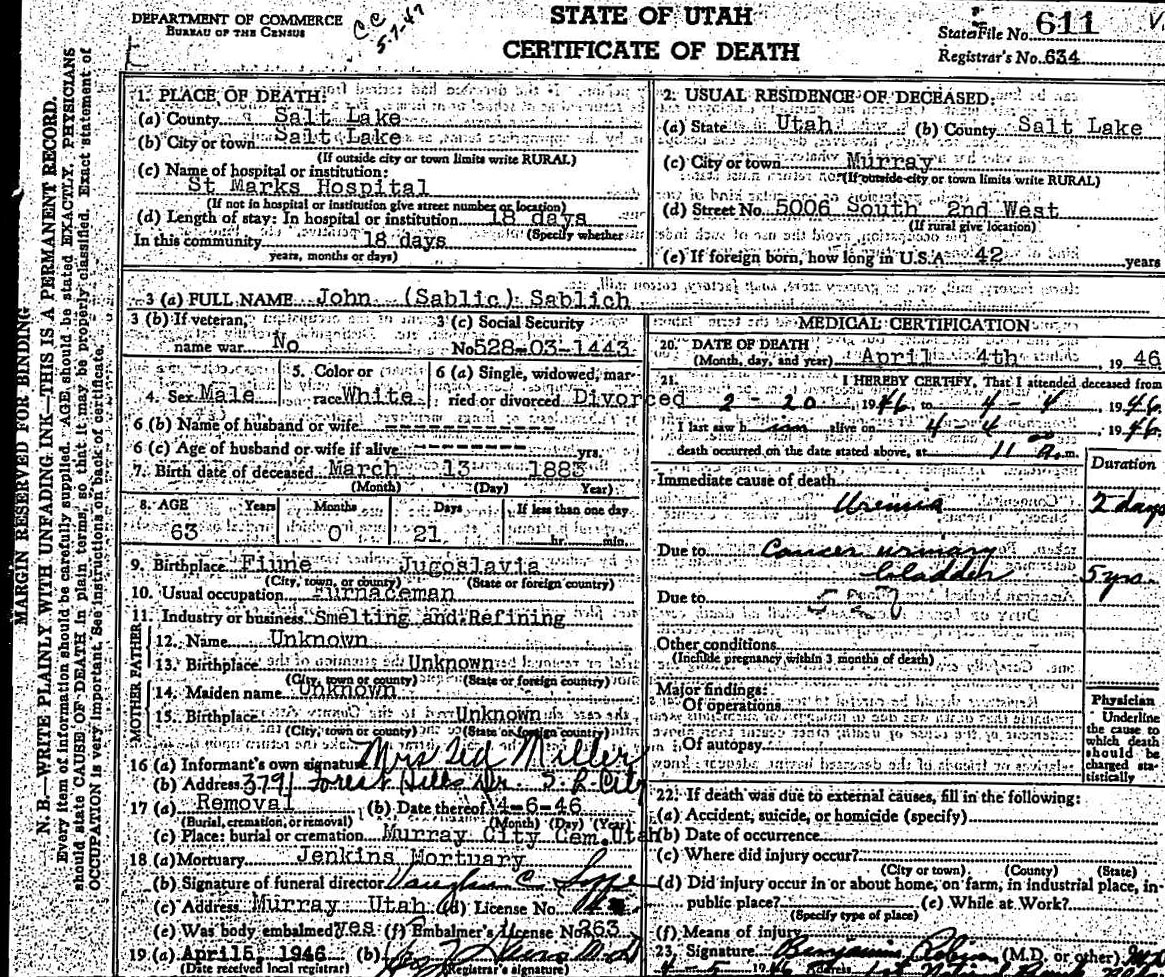 DEPARTMENT OF COMMERCE
BUREAU OF THE CENSUS
CC
5-7-47
STATE OF UTAH
CERTIFICATE OF DEATH
State File No. 611
Registrar's No. 634
MARGIN RESERVED FOR BINDING
N. B.—WRITE PLAINLY WITH UNFADING INK—THIS IS A PERMANENT RECORD.
Every item of information should be carefully supplied. AGE should be stated EXACTLY. PHYSICIANS
should state CAUSE OF DEATH in plain terms, so that it may be properly classified. Exact statement of
OCCUPATION is very important. See instructions on back of certificate.
1. PLACE OF DEATH:
(a) County Salt Lake
(b) City or town Salt Lake
(If outside city or town limits write RURAL)
(c) Name of hospital or institution:
St Marks Hospital
(If not in hospital or institution give street number or location)
(d) Length of stay: In hospital or institution 18 days
(Specify whether
In this community 18 days
years, months or days)
2. USUAL RESIDENCE OF DECEASED:
(a) State Utah (b) County Salt Lake
(c) City or town Murray
(If outside city or town limits write RURAL)
(d) Street No. 5006 South 2nd West
(If rural give location)
(e) If foreign born, how long in U.S.A. 42 years
3 (a) FULL NAME John (Sablic) Sablich
3 (b) If veteran, name war No
3 (c) Social Security No. 528-03-1443
4. Sex Male
5. Color or race White
6 (a) Single, widowed, married or divorced Divorced
6 (b) Name of husband or wife
6 (c) Age of husband or wife if alive yrs.
7. Birth date of deceased March 13 1883
(Month) (Day) Year)
8. AGE Years Months Days If less than one day
63 0 21 hr. min.
9. Birthplace Fiune Jugoslavia
(City, town, or county) (State or foreign country)
10. Usual occupation Furnaceman
11. Industry or business Smelting and Refining
FATHER
12. Name Unknown
13. Birthplace Unknown
(City, town, or county) (State or foreign country)
MOTHER
14. Maiden name Unknown
15. Birthplace Unknown
(City, town, or county) (State or foreign country)
16 (a) Informant's own signature Mrs Ted Miller
(b) Address 3791 Forest Hills Dr. S. L. City
17 (a) Removal (b) Date thereof 4-6-46
(Burial, cremation, or removal) (Month) (Day) (Year)
(c) Place: burial or cremation Murray City Cem. Utah
18 (a) Mortuary Jenkins Mortuary
(b) Signature of funeral director Vaughn C.
(c) Address Murray Utah (d) License No.
(e) Was body embalmed? yes (f) Embalmer's License No. 263
19 (a) April 5, 1946 (b) M.D.
(Date received local registrar) (Registrar's signature)
MEDICAL CERTIFICATION
20. DATE OF DEATH
(Month, day, and year) April 4th, 19 46
21. I HEREBY CERTIFY, That I attended deceased from
2 - 20, 1946, to 4 - 4, 1946.
I last saw h im alive on 4 - 4, 1946.
death occurred on the date stated above, at 11 00 a.m.
Duration
Immediate cause of death
Uremia 2 days
Due to Cancer urinary
bladder 5 yrs.
Due to
Other conditions
(Include pregnancy within 3 months of death)
Major findings:
Of operations
Of autopsy
Physician
Underline
the cause to
which death
should be
charged sta-
tistically
22. If death was due to external causes, fill in the following:
(a) Accident, suicide, or homicide (specify)
(b) Date of occurrence
(c) Where did injury occur?
(City or town) (County) (State)
(d) Did injury occur in or about home, on farm, in industrial place, in
public place? (e) While at Work?
(Specify type of place)
(f) Means of injury
23. Signature Benjamin (M.D. or other)
4 - 5 1946 Address